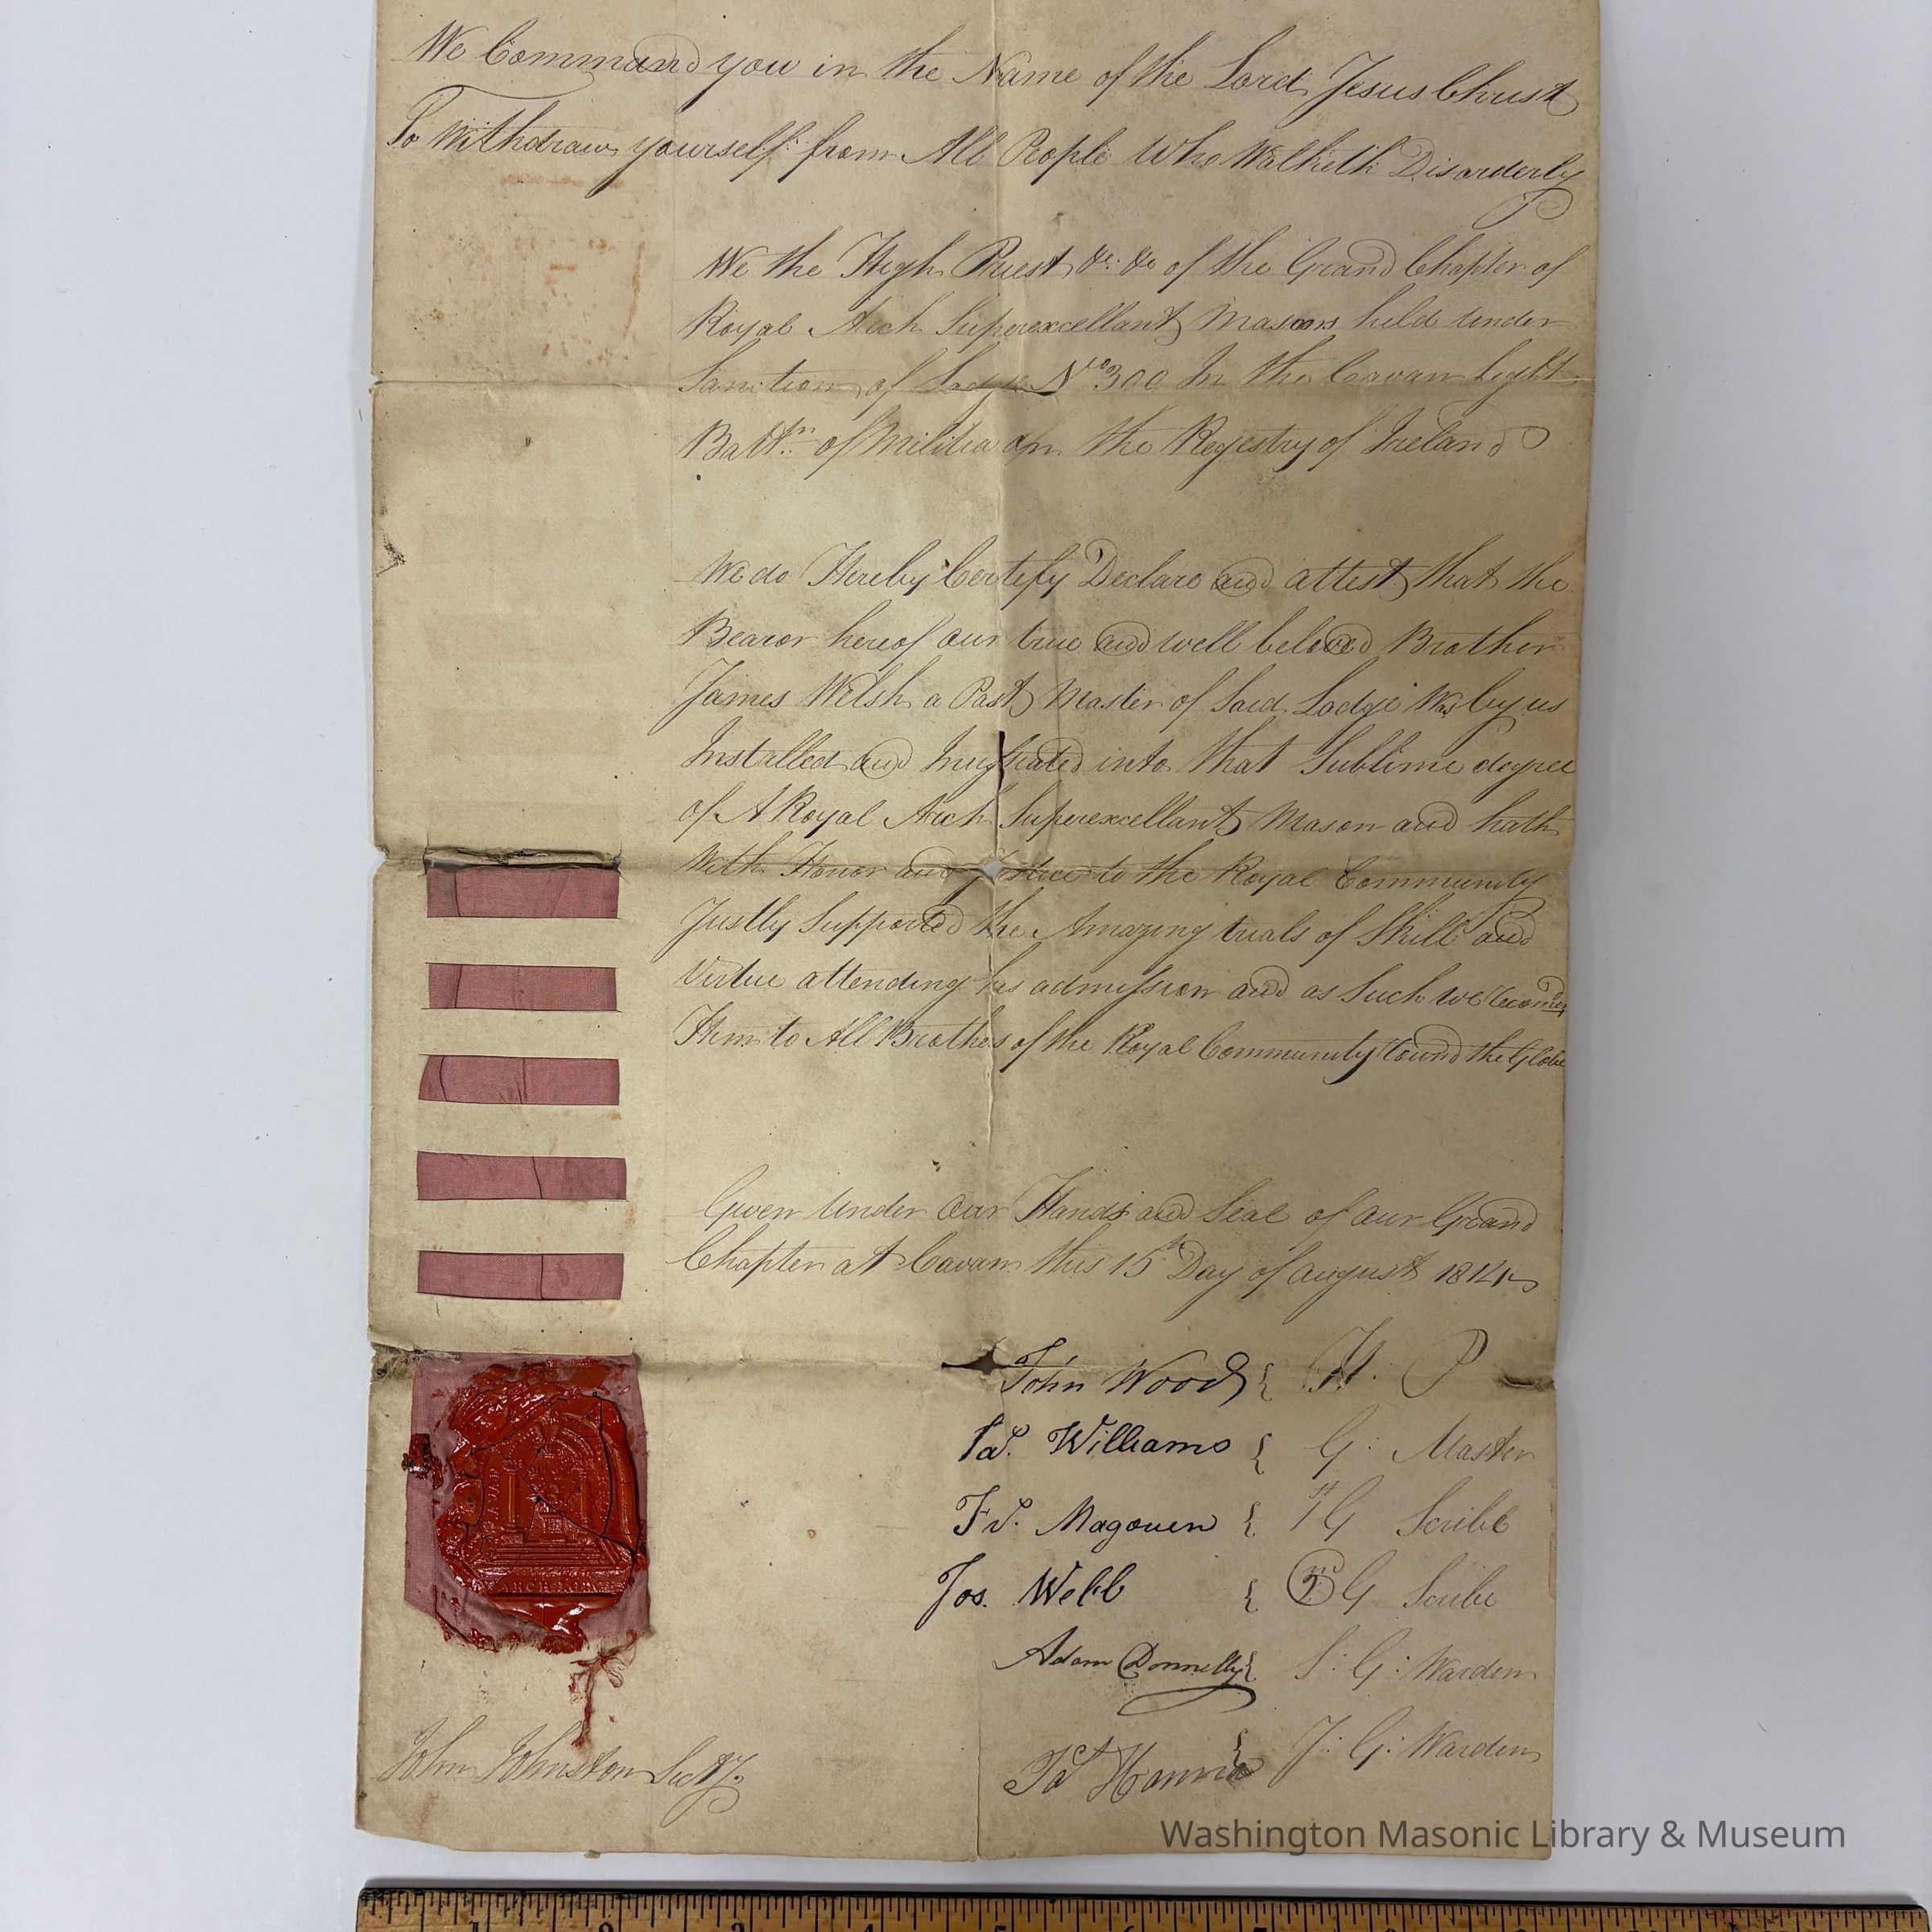 We Command you in the Name of the Lord Jesus Christ
To Withdraw yourself from All People Who Walketh Disorderly
We the High Priest &c: &c of the Grand Chapter of
Royal Arch Superexcellant Masons held under
Sanction of Lodge No 300 In the Cavan Light
Battn: of Militia on the Regestry of Ireland
We do Hereby Certefy Declare and attest that the
Bearor hereof our true and well beloved Brother
James Welsh a Past Master of Said Lodge Was by us
Installed and into that Sublime degree
of A Royal Arch Superexcellant Mason and hath
With Honor and Justice to the Royal Community
Justly Supported the Amazing trials of Skill and
Virtue attending his admission and as Such we
Him to All Brothes of the Royal Community round the Globe
Given Under our Hands and Seal of our Grand
Chapter at Cavan this 15th Day of august 1814
John Wood { H: P
Williams { G: Master
Magouen { 1st G Scribe
Jos. Webb { 2nd G Scribe
Adam Donnelly { S: G: Warden
{ J: G: Warden
ARCH LODGE
John Johnston Secty:
Washington Masonic Library & Museum
1 2 3 4 5 6 7 8 9